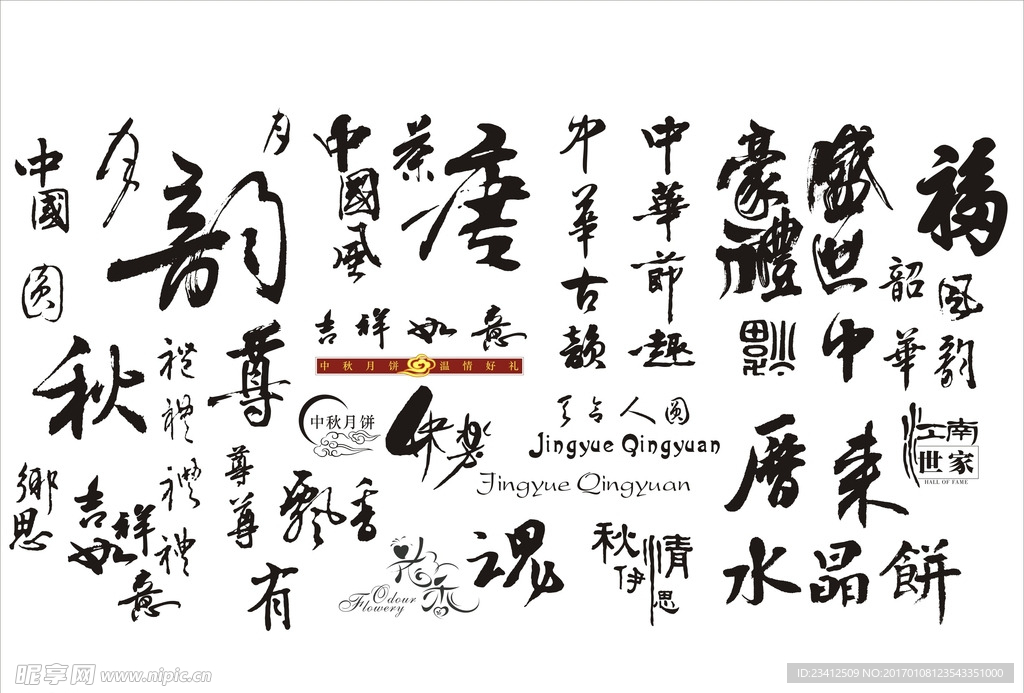 中國
圆
月
韵
月
中國風
茶
唐
吉祥如意
中秋月饼 温情好礼
中秋月饼
快樂
中華古韻
中華節趣
月合人圆
Jingyue Qingyuan
Jingyue Qingyuan
豪禮
盛世
中
福
韶華
風韵
秋
禮
禮
禮
禮
尊
尊
尊
鄉思
吉祥如意
飄香
有
花香
Odour
Flowery
魂
秋伊
情思
唇来
江南
世家
HALL OF FAME
水晶餅
昵享网 www.nipic.cn
ID:23412509 NO:20170108123543351000